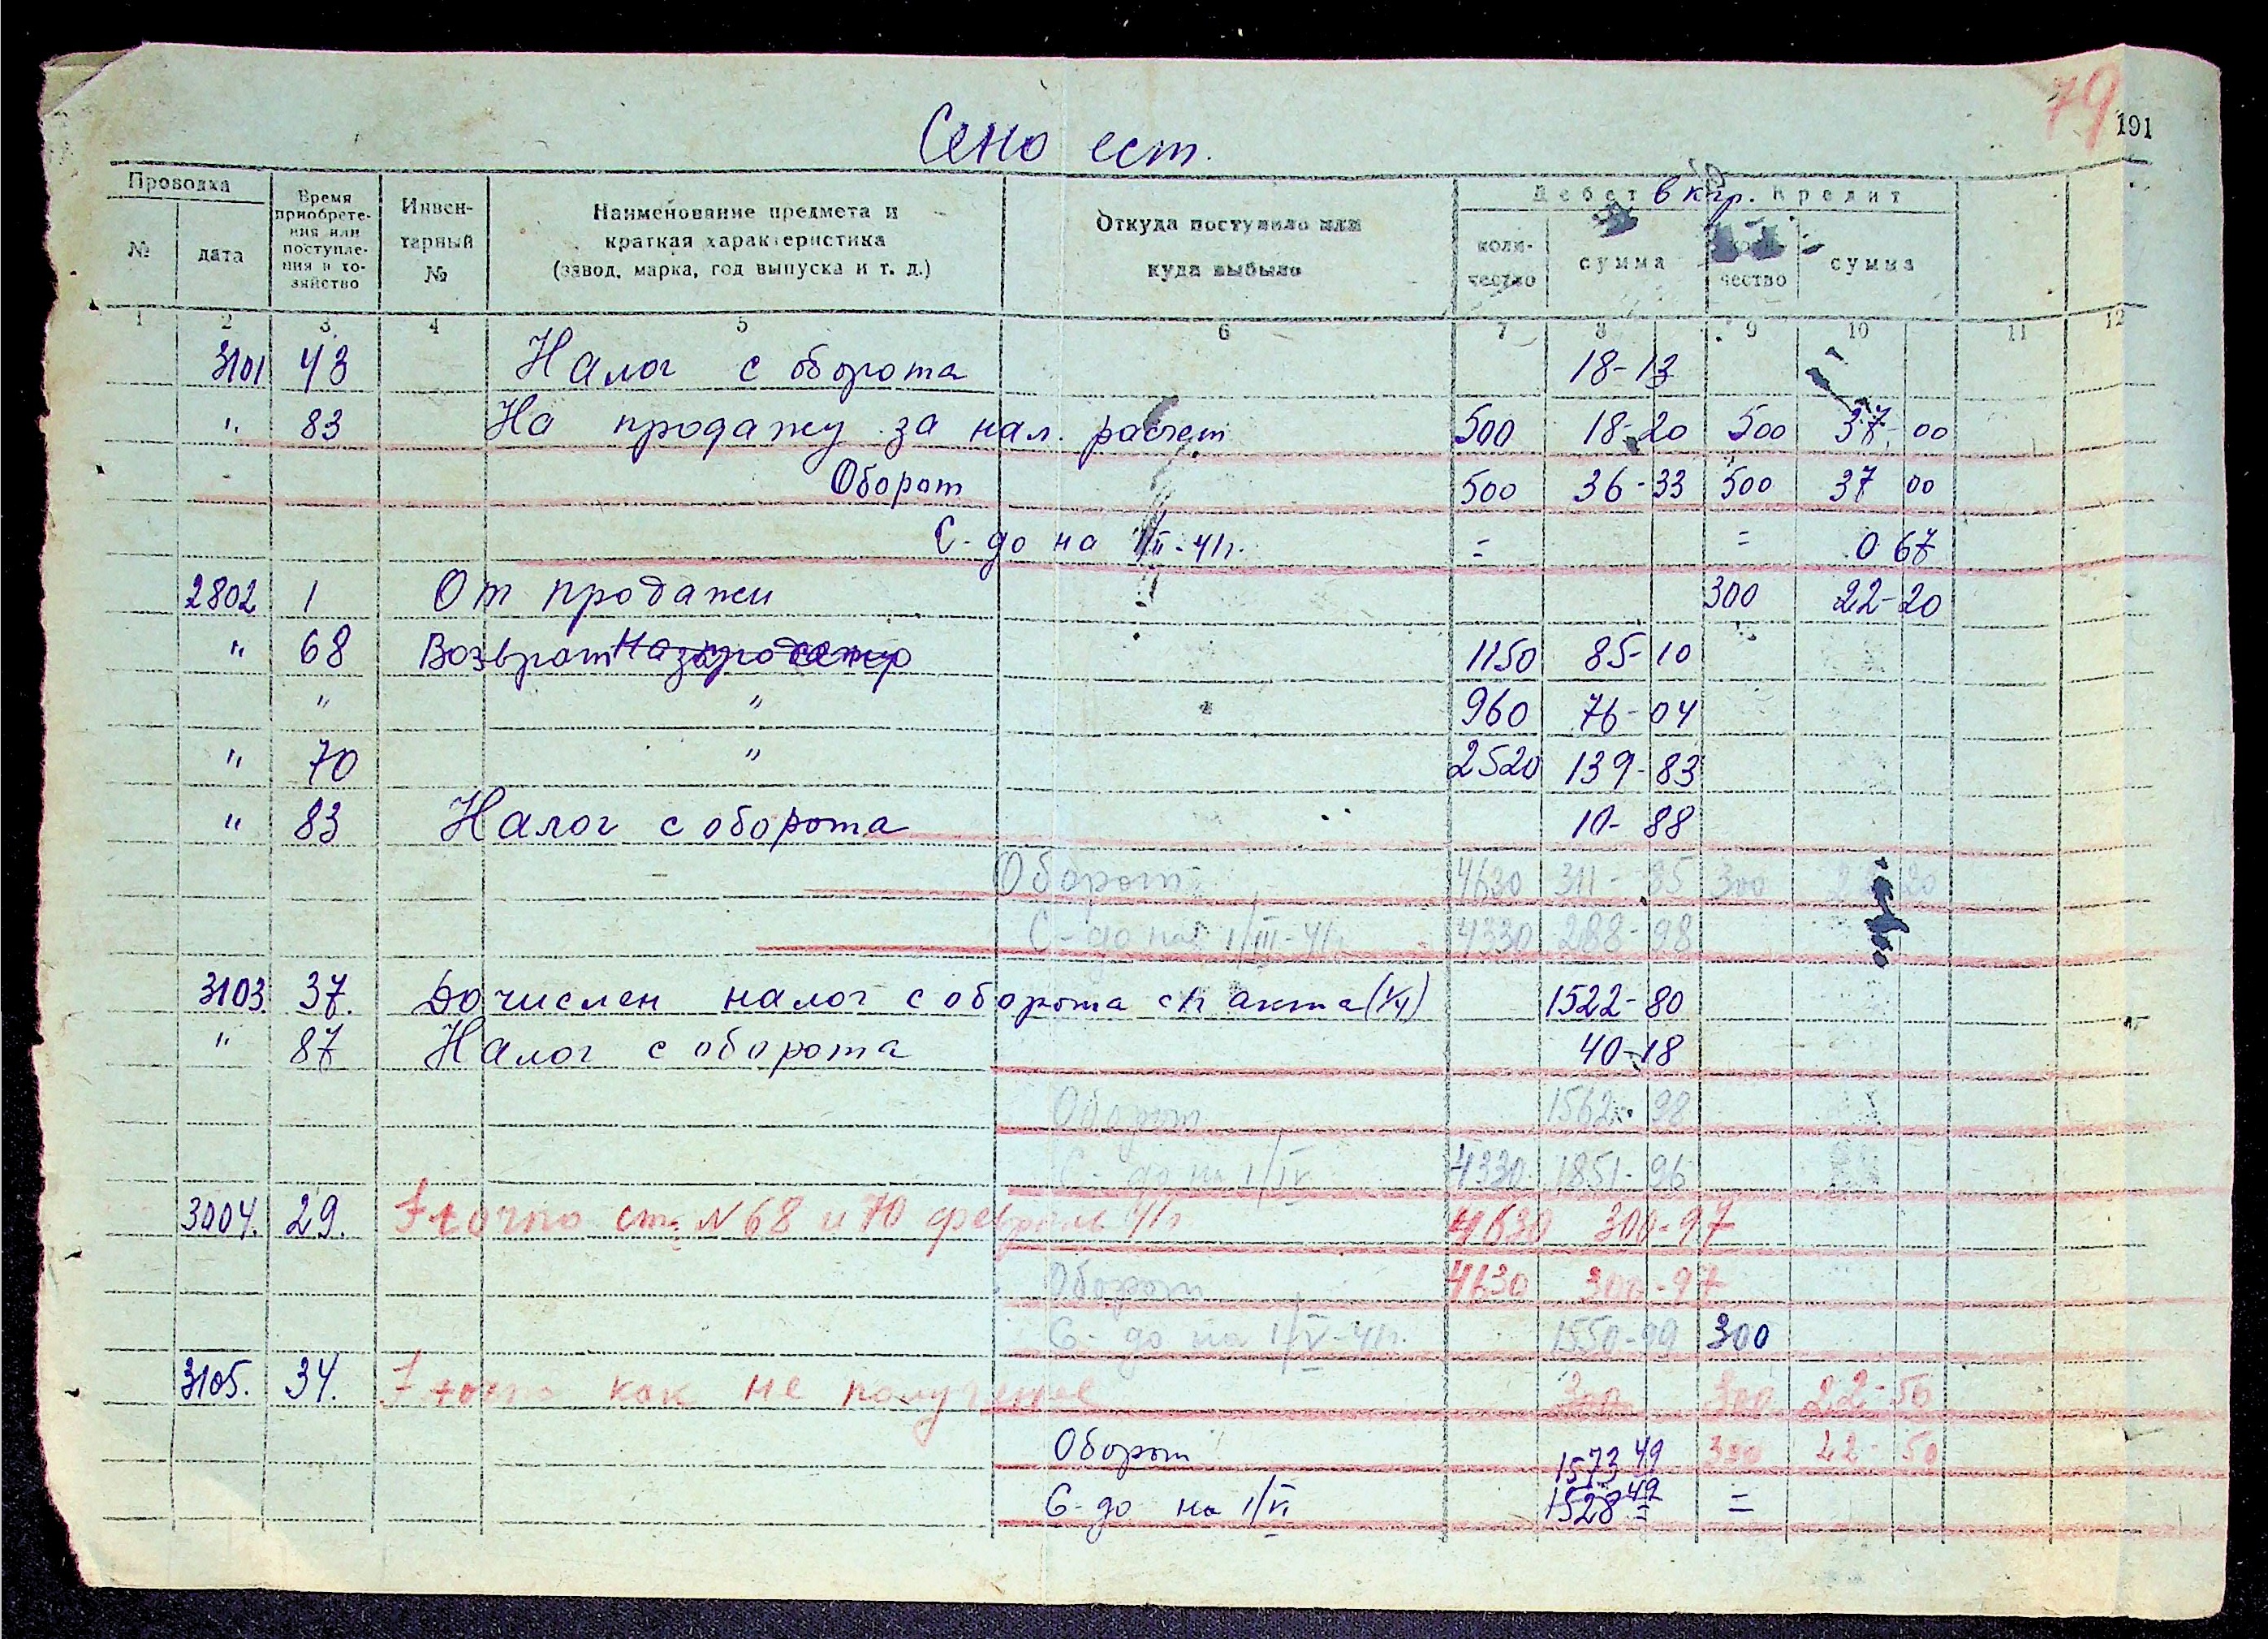 79
191
Сено ест.
Проводка
№
дата
Время
приобрете-
ния или
поступле-
ния в хо-
зяйство
Инвен-
тарный
№
Наименование предмета и
краткая характеристика
(завод, марка, год выпуска и т. д.)
Откуда поступило или
куда выбыло
Дебет в кгр. Кредит
коли-
чество
сумма
чество
сумма
1 2 3 4 5 6 7 8 9 10 11 12
3101 43 Налог с оборота 18-13
" 83 На продажу за нал. расчет 500 18-20 500 37-00
Оборот 500 36-33 500 37 00
С-до на 1/II-41г. = = 0 67
2802 1 От продажи 300 22-20
" 68 Возврат 1150 85-10
" " 960 76-04
" 70 " 2520 139-83
" 83 Налог с оборота 10-88
Оборот 4630 311-85 300 22 20
С-до на 1/III-41г 4330 288-98
3103. 37. Дочислен налог с оборота сп акта (1/4) 1522-80
" 87 Налог с оборота 40-18
Оборот 1562-98
С-до на 1/IV 4330 1851-96
3004. 29. ст. N 68 и 70 февраль 41г 4630 300-97
Оборот 4630 300-97
С-до на 1/V-41г. 1550-99 300
3105. 34. как не полученное 300 300 22-50
Оборот 1573 49 300 22-50
С-до на 1/VI 1528 49 =